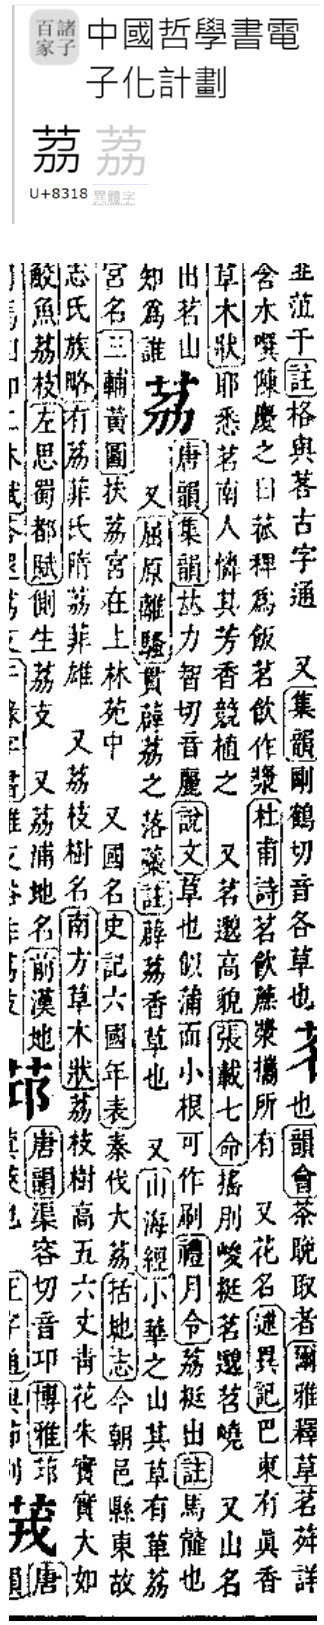 諸子百家
中國哲學書電子化計劃
荔 荔
U+8318 異體字
韭菹于註格與茖古字通 又集韻剛鶴切音各草也 茗 也韻會茶晚取者爾雅釋草茗荈詳
含水噀陳慶之曰菰稗為飯茗飲作漿杜甫詩茗飲蔗漿攜所有 又花名述異記巴東有眞香
草木狀耶悉茗南人憐其芳香競植之 又茗邈高貌張載七命搖刖峻挺茗邈苕嶢 又山名
出茗山 唐韻集韻𠀤力智切音麗說文草也似蒲而小根可作刷禮月令荔挺出註馬䪥也
知為誰 荔 又屈原離騷貫薜荔之落蘂註薜荔香草也 又山海經小華之山其草有萆荔
宮名三輔黃圖扶荔宮在上林苑中 又國名史記六國年表秦伐大荔括地志今朝邑縣東故
志氏族略有荔菲氏隋荔菲雄 又荔枝樹名南方草木狀荔枝樹高五六丈靑花朱實實大如
鮫魚荔枝左思蜀都賦側生荔支 又荔浦地名前漢地 唐韻渠容切音卭博雅 茙 唐